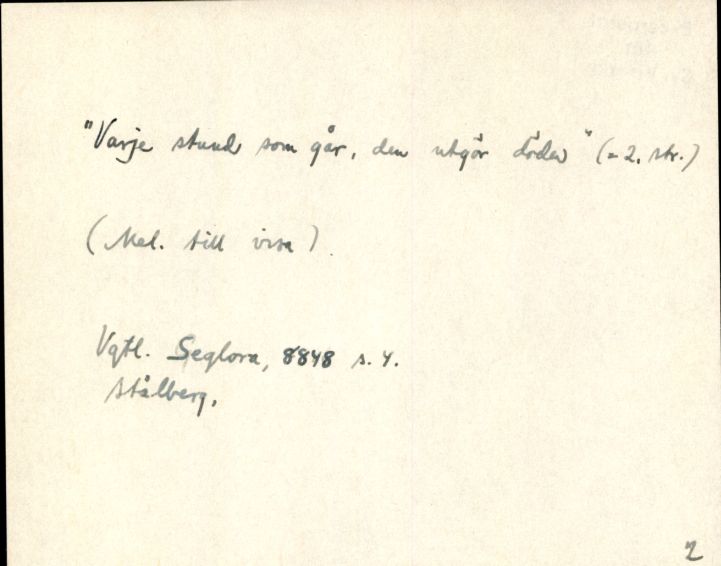 "Varje stund som går, den utgör döden" (= 2. str.)
(Mel. till visa)
Vgtl. Seglora, 8848 s. 4.
Stålberg.
2